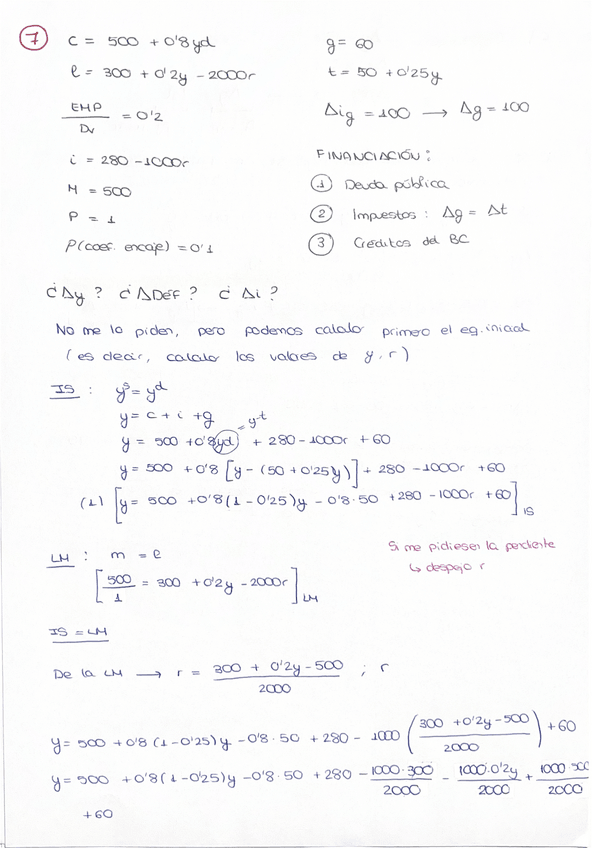 7
c = 500 + 0'8yd
g = 60
l = 300 + 0'2y - 2000r
t = 50 + 0'25y
EMP/Dv = 0'2
Δig = 100 → Δg = 100
i = 280 - 1000r
FINANCIACIÓN:
M = 500
① Deuda pública
P = 1
② Impuestos: Δg = Δt
ρ(coef. encaje) = 0'1
③ Créditos del BC
¿Δy? ¿ΔDéf? ¿Δi?
No me lo piden, pero podemos calcular primero el eq. inicial
(es decir, calcular los valores de y, r)
IS: yˢ = yᵈ
y = c + i + g
y = 500 + 0'8yd + 280 - 1000r + 60
= y-t
y = 500 + 0'8 [y - (50 + 0'25y)] + 280 - 1000r + 60
(1) [y = 500 + 0'8(1 - 0'25)y - 0'8·50 + 280 - 1000r + 60] IS
LM: m = l
Si me pidiesen la pendiente
↳ despejo r
[500/1 = 300 + 0'2y - 2000r] LM
IS = LM
De la LM → r = (300 + 0'2y - 500)/2000 ; r
y = 500 + 0'8(1 - 0'25)y - 0'8·50 + 280 - 1000 ((300 + 0'2y - 500)/2000) + 60
y = 500 + 0'8(1 - 0'25)y - 0'8·50 + 280 - 1000·300/2000 - 1000·0'2y/2000 + 1000·500/2000
+ 60